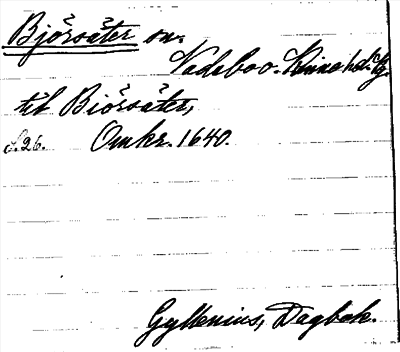 Björsäter sn.
Vadsboo. Kinne hd. Vg.
till Biörsäter,
S. 26. Omkr. 1640.
Gyllenius, Dagbok.